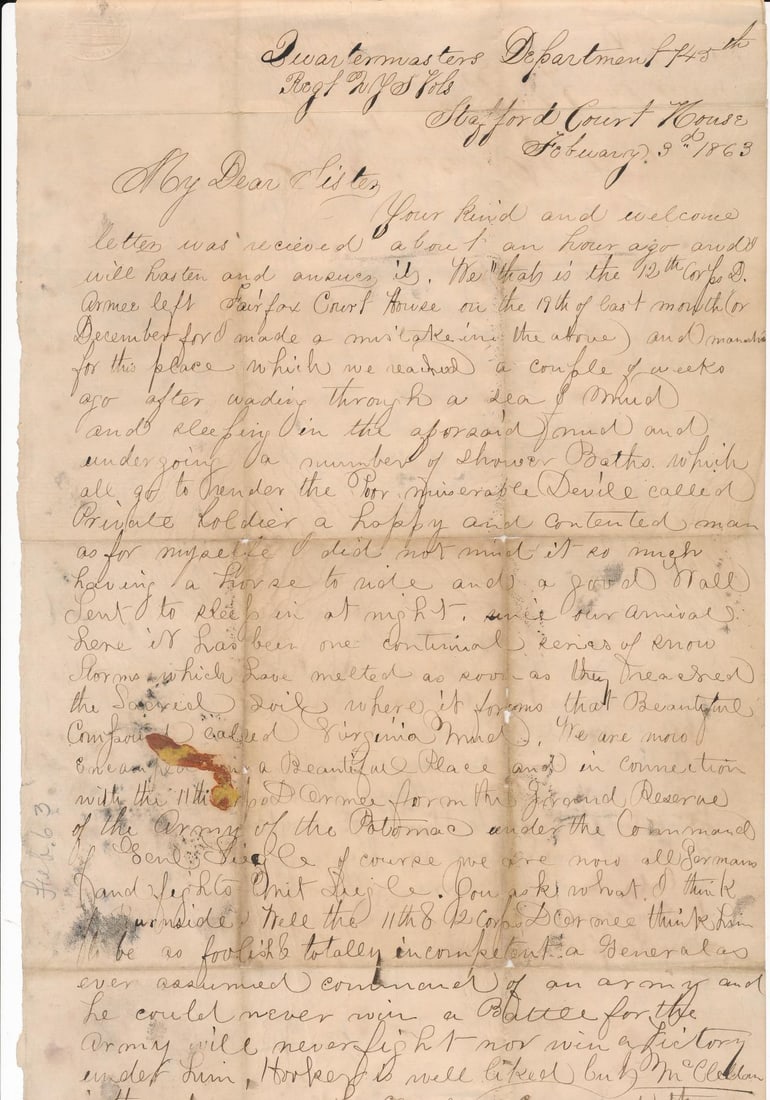 Quartermasters Department 145th
Regt N Y S Vols
Stafford Court House
Febuary 3d 1863
My Dear Sister
Your kind and welcome
letter was recieved about an hour ago and I
will hasten and answer it. We "that is the 12th Corps D.
Armee left Fairfax Court House on the 19th of last month (or
December for I made a mistake in the above) and
for this place which we reached a couple of weeks
ago after wading through a sea of Mud
and sleeping in the aforsaid mud and
undergoing a number of Shower Baths which
all go to render the Poor miserable Devile called
Private Soldier a happy and contented man
as for myselfe I did not mind it so much
having a horse to ride and a good Wall
tent to sleep in at night. since our arrival
here it has been one continual series of snow
Storms which have melted as soon as they reached
the Sacred Soil where it forms that Beautiful
Compound called Virginia Mud. We are now
Encamped in a Beautiful Place and in connection
with the 11th Corps D Armee form the Grand Reserve
of the Army of the Potomac under the Command
of Genl Siegle of course we are now all Germans
and fights mit Siegle. You ask what I think
of Burnside. Well the 11th & 12 Corps D Armee think him
to be as foolish & totally incompetent a General as
ever assumed command of an army and
he could never win a Battle for the
Army will never fight nor win a Victory
under him, Hooker is well liked but McClellan
Feb. 63